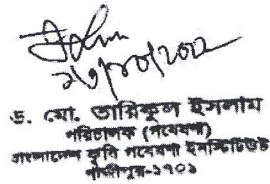 ড. মো. তারিকুল ইসলাম
পরিচালক (গবেষণা)
বাংলাদেশ কৃষি গবেষণা ইনস্টিটিউট
গাজীপুর-১৭০১